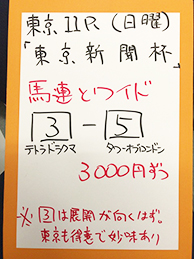 東京11R(日曜)
「東京新聞杯」
馬連とワイド
3-5
テトラドラクマ タワーオブロンドン
3000円ずつ
※3は展開が向くはず。
東京も得意で妙味あり